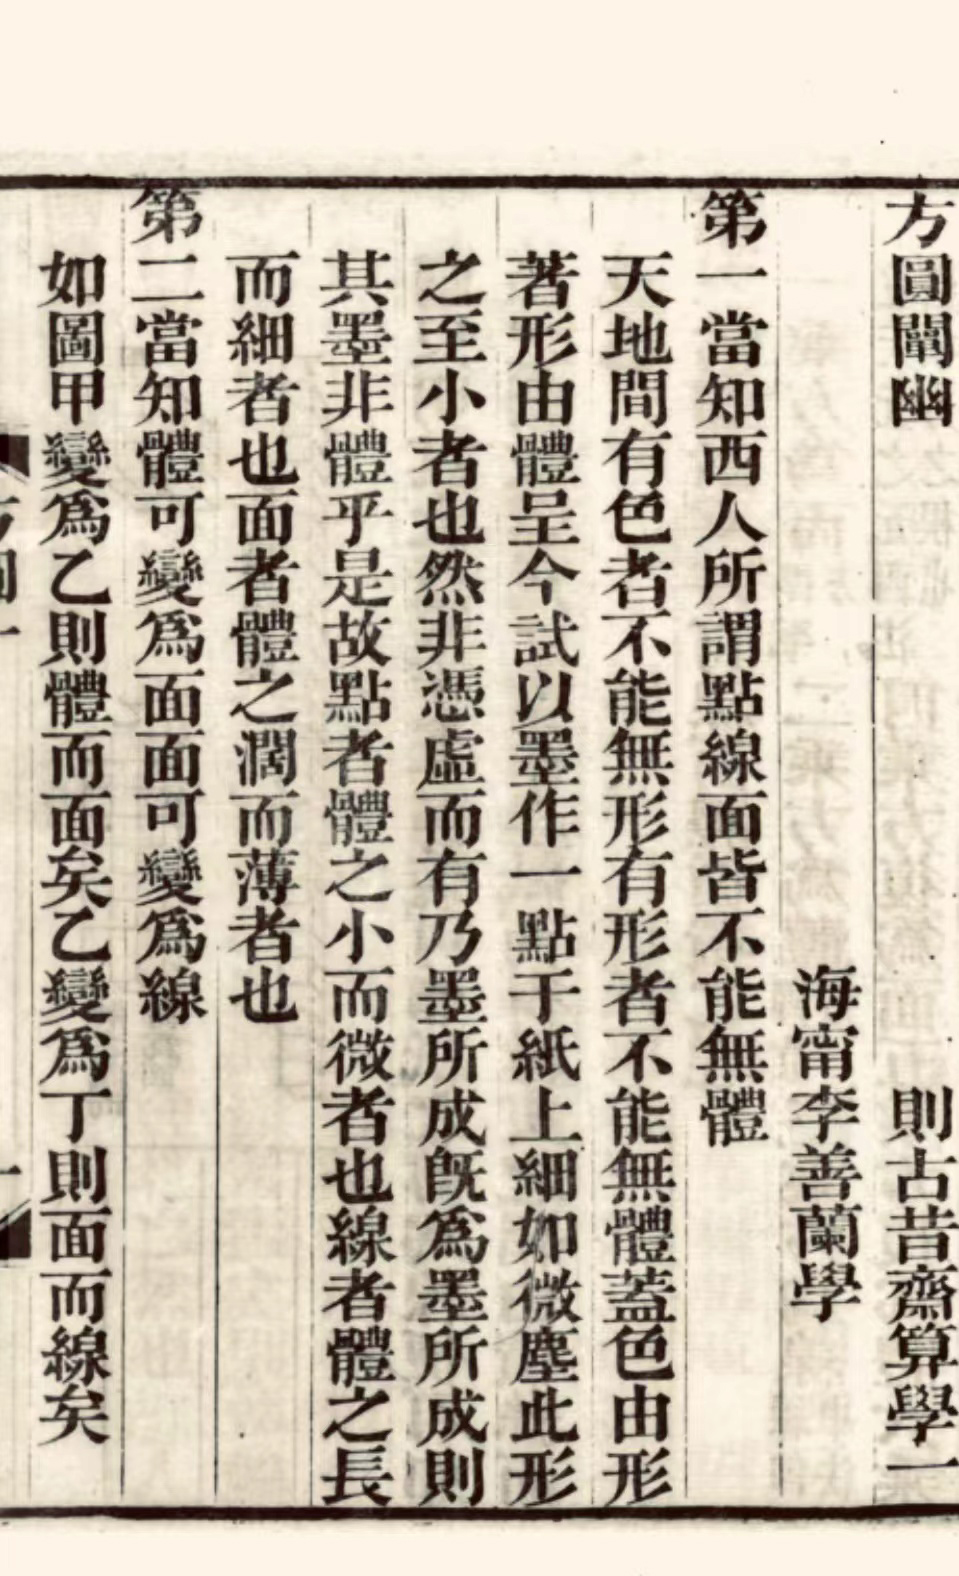 方圓闡幽 則古昔齋算學一
海甯李善蘭學
第一當知西人所謂點線面皆不能無體
天地間有色者不能無形有形者不能無體蓋色由形
著形由體呈今試以墨作一點于紙上細如微塵此形
之至小者也然非憑虛而有乃墨所成旣爲墨所成則
其墨非體乎是故點者體之小而微者也線者體之長
而細者也面者體之濶而薄者也
第二當知體可變爲面面可變爲線
如圖甲變爲乙則體而面矣乙變爲丁則面而線矣